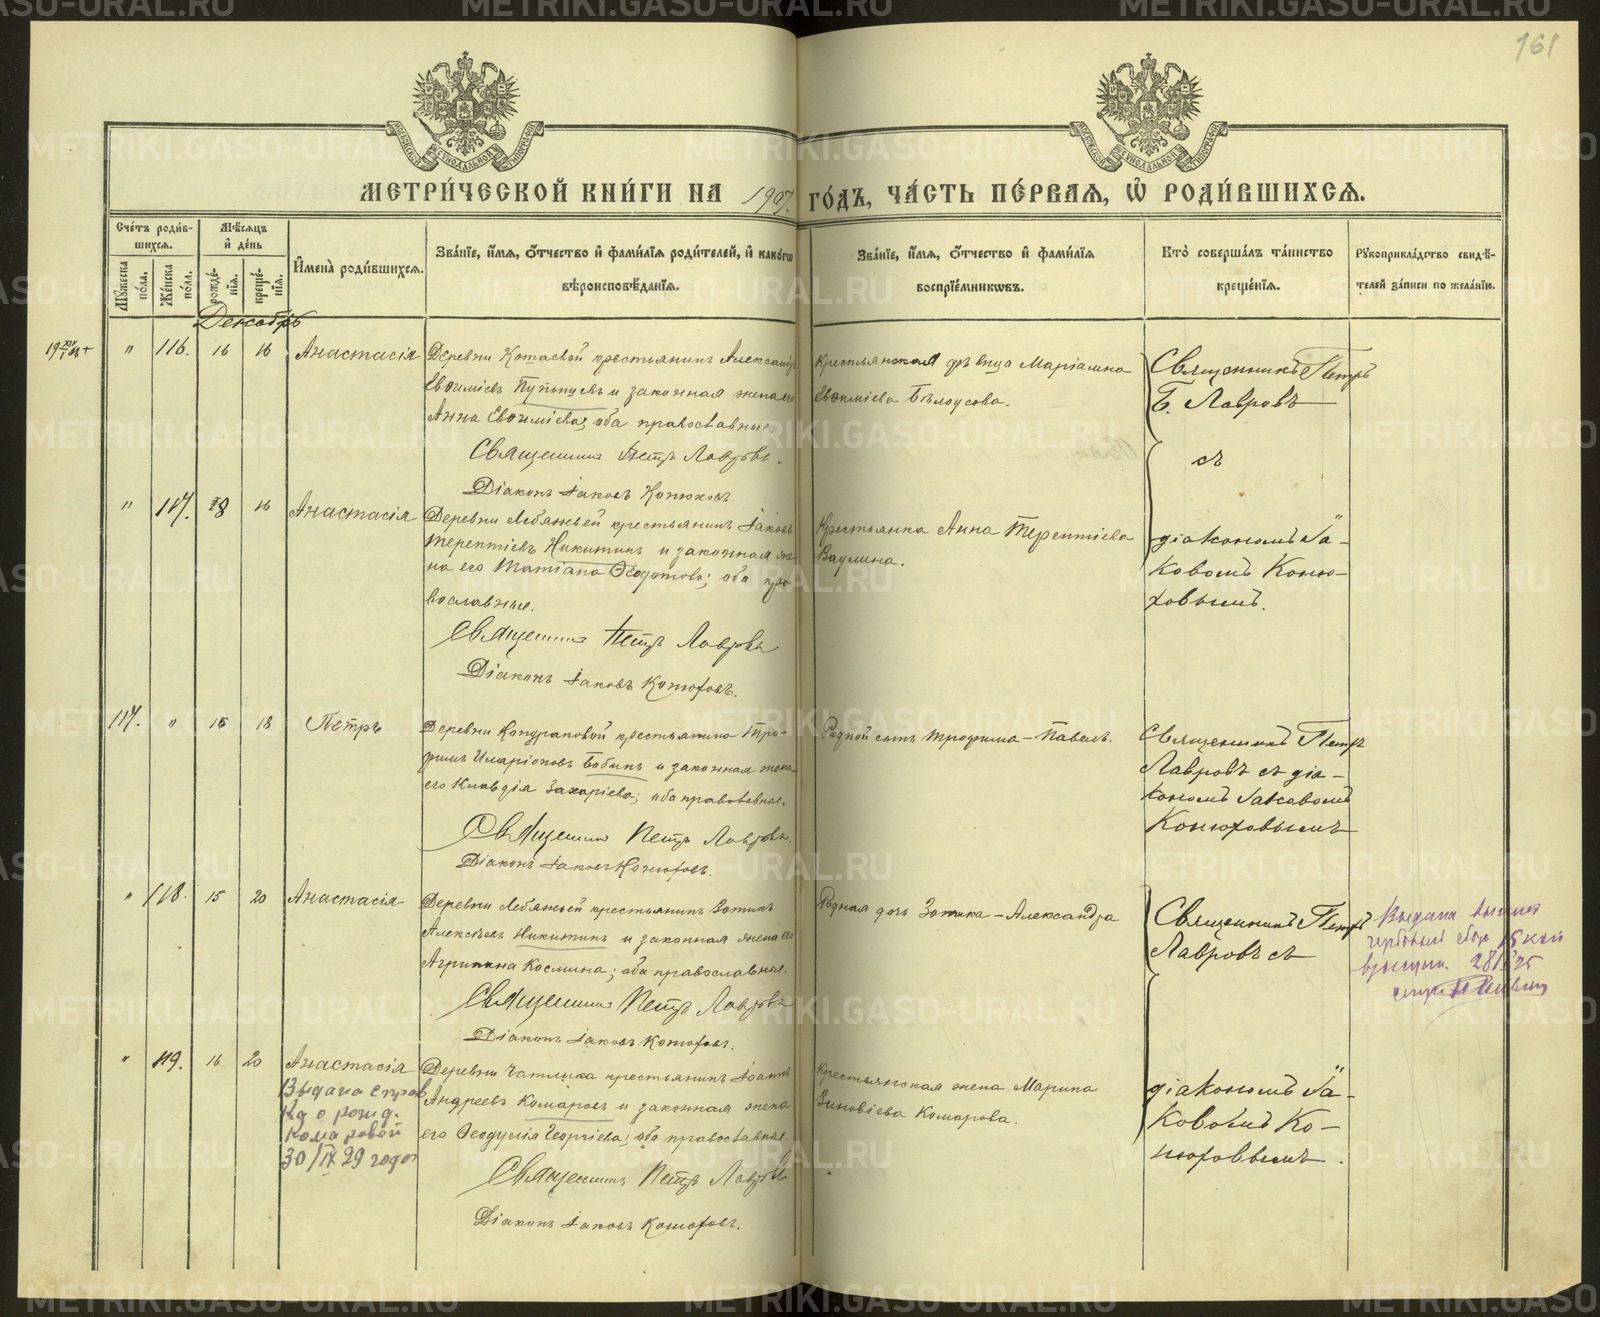 161
МОСКОВСКОЙ СѴНОДАЛЬНОЙ ТИПОГРАФІИ
МОСКОВСКОЙ СѴНОДАЛЬНОЙ ТИПОГРАФІИ
МЕТРИ́ЧЕСКОЙ КНИ́ГИ НА 1907. ГО́ДЪ, ЧА́СТЬ ПЕ́РВАЯ, Ѽ РОДИ́ВШИХСЯ.
Сче́тъ роди́вшихся.
Мꙋ́жеска по́ла.
Же́нска по́ла.
Мѣ́сяцъ и҆ де́нь
рожде́нїя.
креще́нїя.
И҆мена̀ роди́вшихся.
Зва́нїе, и҆́мя, ѻ҆́тчество и҆ фами́лїя роди́телей, и҆ како́гѡ
вѣроисповѣ́данїя.
Зва́нїе, и҆́мя, ѻ҆́тчество и҆ фами́лїя
воспрїе́мникѡвъ.
Кто̀ соверша́лъ та́инство
креще́нїя.
Рꙋкоприкла́дство свидѣ́-
телей за́писи по жела́нїю.
Декабрь
" 116. 16 16 Анастасія
Деревни Котаевой крестьянинъ Александръ
Евѳиміевъ и законная жена его
Анна Евѳиміева; оба православные.
Священникъ Петръ Лавровъ.
Діаконъ Іаковъ Конюховъ
Крестьянская дѣвица Маріамна
Евѳиміева Бѣлоусова.
Священникъ Петръ
Б. Лавровъ
съ
" 117. 16 Анастасія
Деревни Лебяжьей крестьянинъ Іаковъ
Терентіевъ Никитинъ и законная же-
на его Татіана Ѳедотова; оба пра-
вославные.
Священникъ Петръ Лавровъ
Діаконъ Іаковъ Конюховъ.
Крестьянка Анна Терентіева
Ваулина.
діакономъ Іа-
ковомъ Коню-
ховымъ.
117. " 15 18 Петръ
Деревни Кондраковой крестьянинъ Тро-
фимъ Иларіоновъ Бабинъ и законная жена
его Клавдія Захаріева; оба православные.
Священникъ Петръ Лавровъ.
Діаконъ Іаковъ Конюховъ.
Родной сынъ Трофима - Павелъ.
Священникъ Петръ
Лавровъ съ діа-
кономъ Іаковомъ
Конюховымъ
" 118. 15 20 Анастасія
Деревни Лебяжьей крестьянинъ Зотикъ
Алексѣевъ Никитинъ и законная жена его
Агриппина Космина; оба православные.
Священникъ Петръ Лавровъ
Діаконъ Іаковъ Конюховъ.
Родная дочь Зотика - Александра
Священникъ Петръ
Лавровъ съ
Выдана
28
" 119. 16 20 Анастасія
Выдана справ
ка о рожд.
Комаровой
30/IX 29 года
Деревни Чатлыка крестьянинъ Іоаннъ
Андреевъ Комаровъ и законная жена
его Ѳеодулія Георгіева; оба православные.
Священникъ Петръ Лавровъ
Діаконъ Іаковъ Конюховъ.
Крестьянская жена Марина
Зиновіева Комарова.
діакономъ Іа-
ковомъ Ко-
нюховымъ.
METRIKI.GASO-URAL.RU